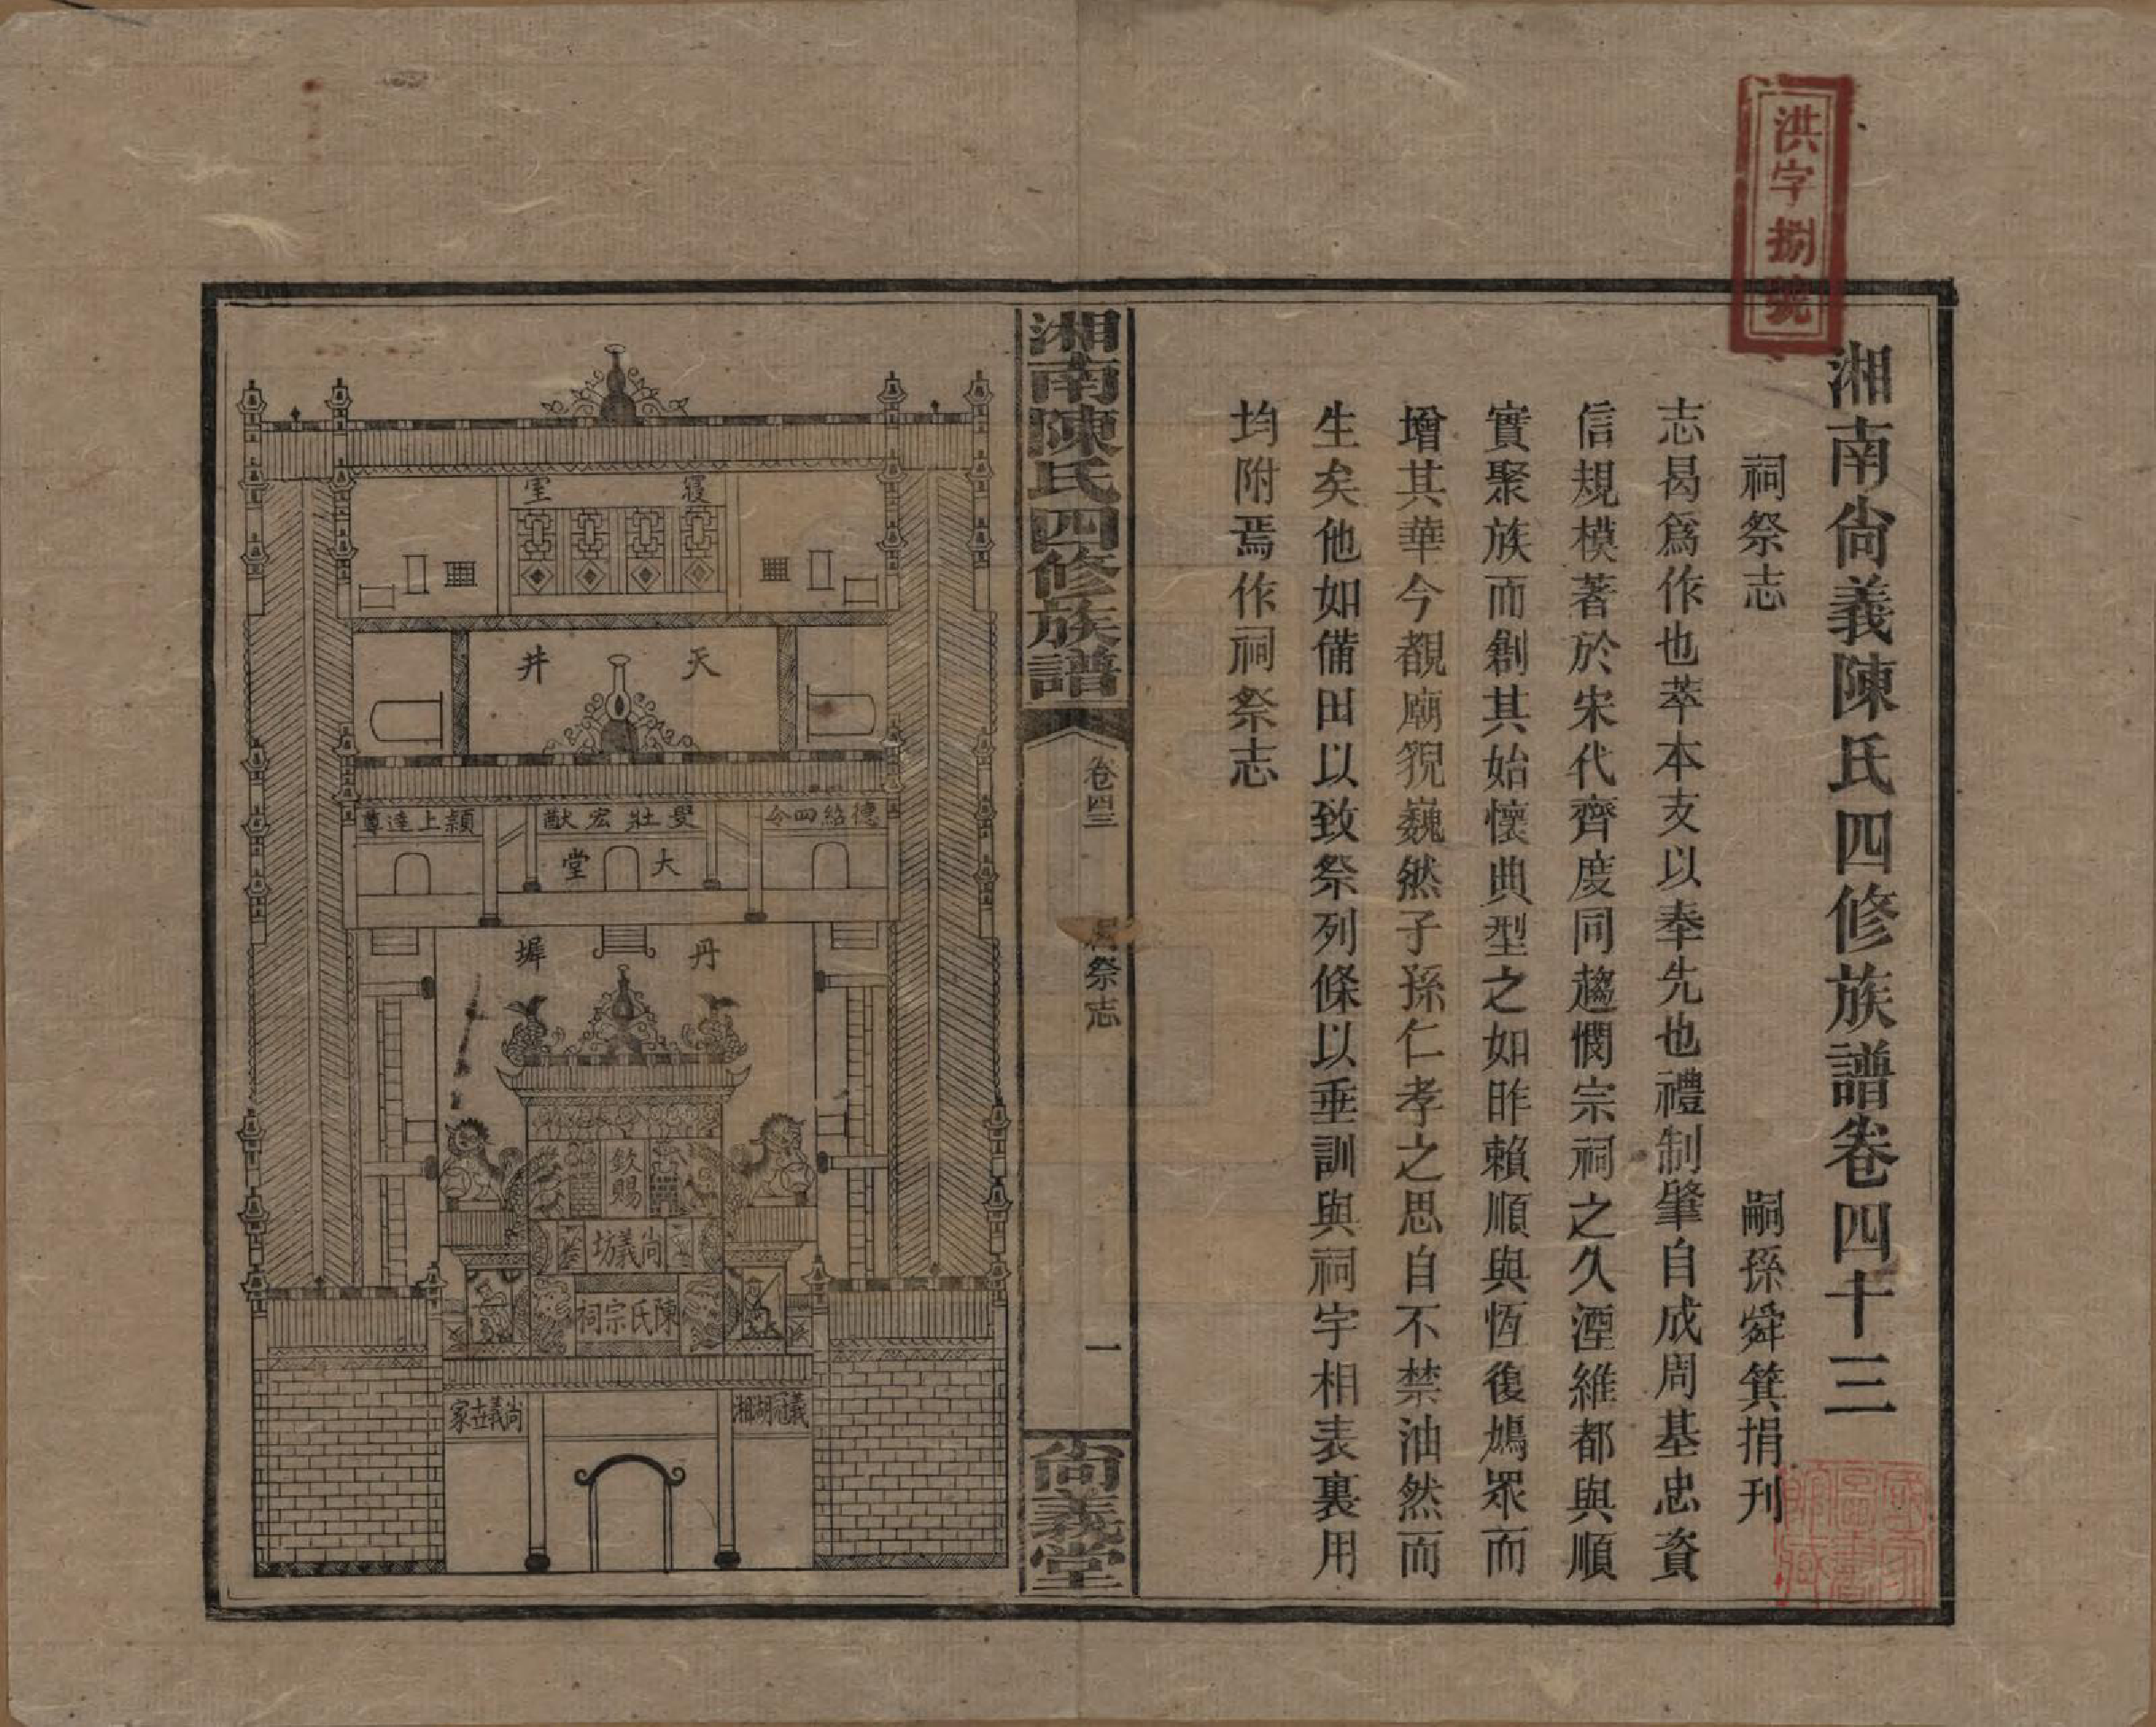 洪字捌號
湘南尙義陳氏四修族譜卷四十三
祠祭志
嗣孫舜箕捐刊
志曷爲作也萃本支以奉先也禮制肇自成周基忠資
信規模著於宋代齊度同趨憫宗祠之久湮維都與順
實聚族而創其始懷典型之如昨賴順與恆復鳩眾而
增其華今覩廟貌巍然子孫仁孝之思自不禁油然而
生矣他如備田以致祭列條以垂訓與祠宇相表裏用
均附焉作祠祭志
湘南陳氏四修族譜
卷四三
祠祭志
一
尙義堂
寢室
天井
德紹四令
燮壯宏猷
穎上達尊
大堂
丹墀
欽賜
尚義坊
陳氏宗祠
義冠湖湘
尚義世家
國家圖書館藏